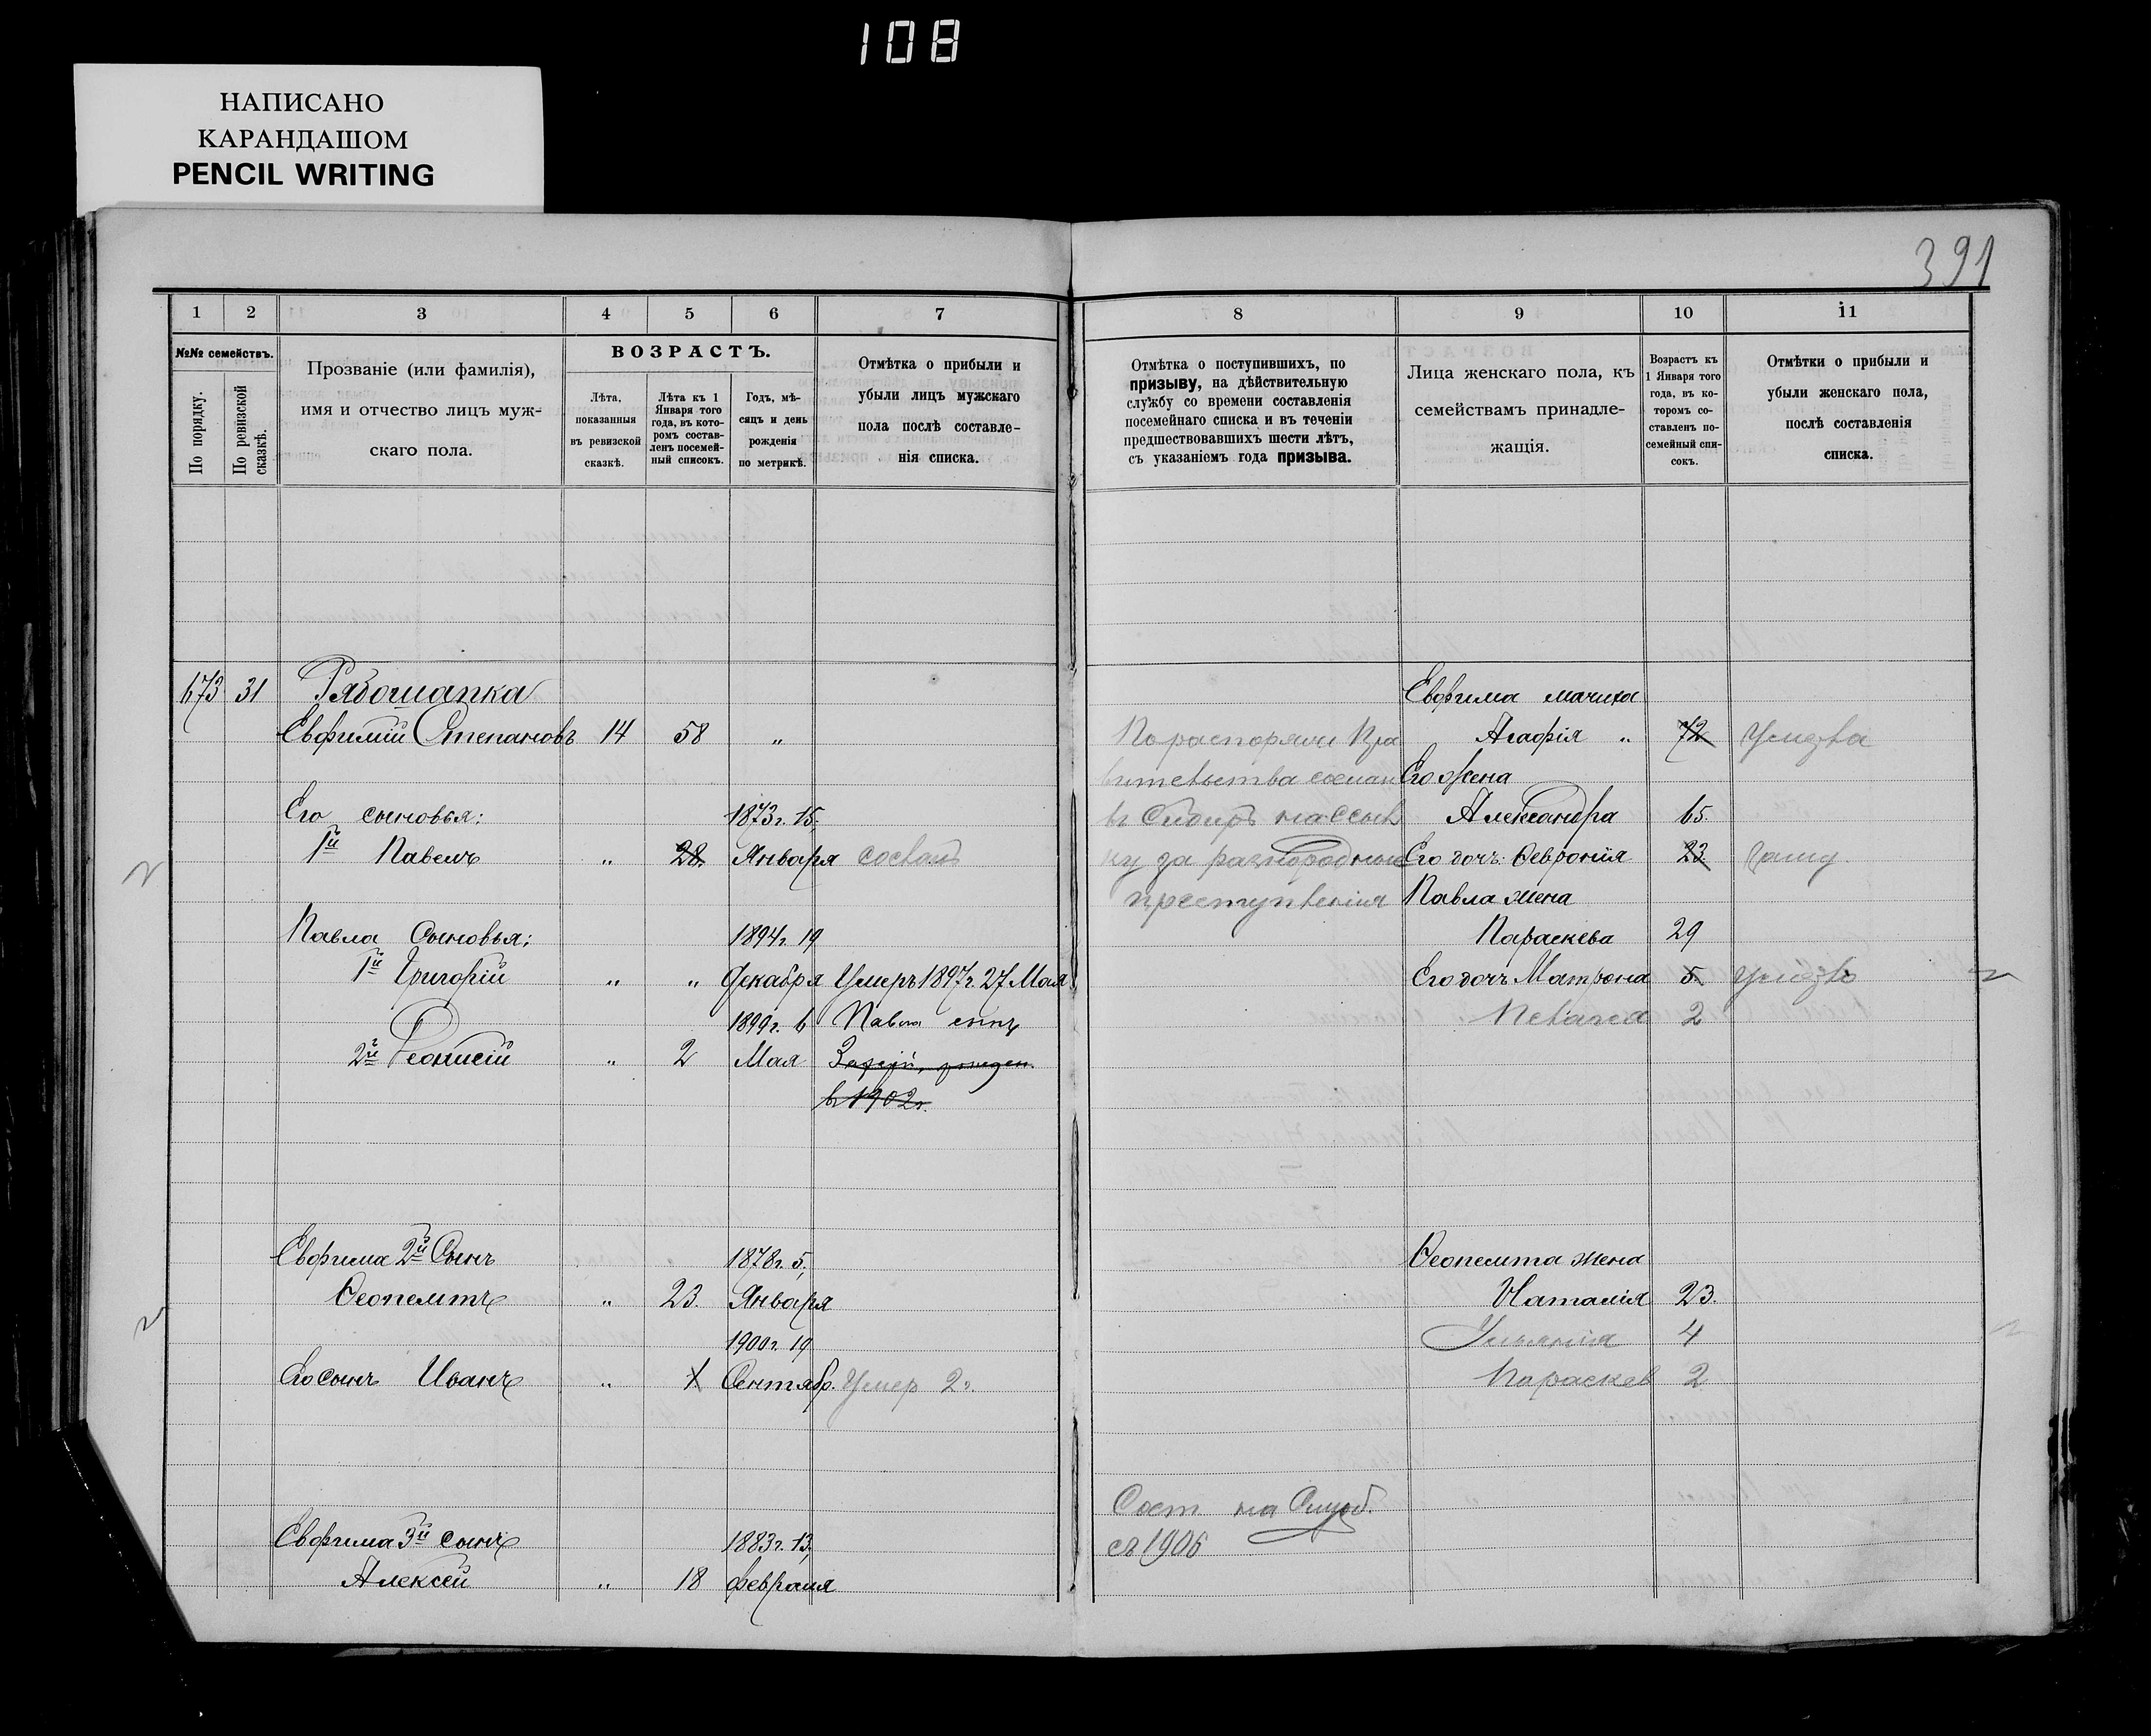 108
НАПИСАНО
КАРАНДАШОМ
PENCIL WRITING
391
1 2 3 4 5 6 7
№№ семействъ.
По порядку.
По ревизской сказкѣ.
Прозваніе (или фамилія),
имя и отчество лицъ муж-
скаго пола.
ВОЗРАСТЪ.
Лѣта,
показанныя
въ ревизской
сказкѣ.
Лѣта къ 1
Января того
года, въ кото-
ромъ состав-
ленъ посемей-
ный списокъ.
Годъ, мѣ-
сяцъ и день
рожденія
по метрикѣ.
Отмѣтка о прибыли и
убыли лицъ мужскаго
пола послѣ составле-
нія списка.
673 31 Рябошапка
Евфимій Степановъ 14 58 "
Его сыновья: 1873г. 15,
1й Павелъ " 28. Января
Павла Сыновья: 1894г. 19
1й Григорій " " Декабря Умеръ 1897г. 27 Мая
1899г. 6 Павла сынъ
2й Деонисій " 2 Мая
в 1902г.
Евфима 2й Сынъ 1878г. 5,
Ѳеопемптъ " 23. Января
1900г. 19
Его сынъ Иванъ " 1 Сентябр. Умер 2г.
Евфима 3й сынъ 1883г. 13,
Алексей " 18 февраля
8 9 10 11
Отмѣтка о поступившихъ, по
призыву, на дѣйствительную
службу со времени составленія
посемейнаго списка и въ теченіи
предшествовавшихъ шести лѣтъ,
съ указаніемъ года призыва.
Лица женскаго пола, къ
семействамъ принадле-
жащія.
Возрастъ къ
1 Января того
года, въ ко-
торомъ со-
ставленъ по-
семейный спи-
сокъ.
Отмѣтки о прибыли и
убыли женскаго пола,
послѣ составленія
списка.
Евфима мачиха
По распоряже Пра Агафія " 72 Умерла
вительства сослан Его жена
въ Сибирь на ссыл Александра 65.
ку за разнородные Его дочь: Ѳевронія 23.
преступленія Павла жена
Параскева 29
Его дочь Матрона 5.
Пелагея 2
Ѳеопемпта жена
Наталія 23.
Ульянія 4
Параскев 2
Сост на Служб.
съ 1906